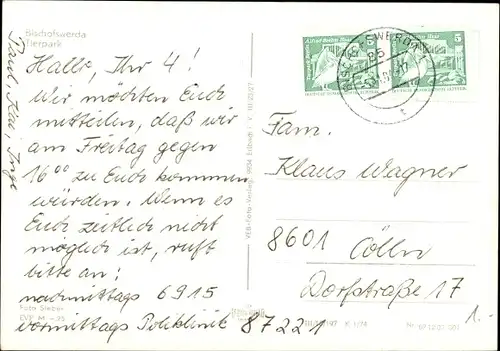 Bischofswerda
Tierpark
Hallo, Ihr 4!
Wir möchten Euch
mitteilen, daß wir
am Freitag gegen
16⁰⁰ zu Euch kommen
würden. Wenn es
Euch zeitlich nicht
möglich ist, ruft
bitte an!
nachmittags 6915
vormittags Poliklinik 87221
Foto Sieber
EVP M -,25
VEB Foto-Verlag 9934 Erlbach i. V.
BISCHOFSWERDA 1
85
5
5
Fam.
Klaus Wagner
8601 Cölln
Dorfstraße 17
1.-